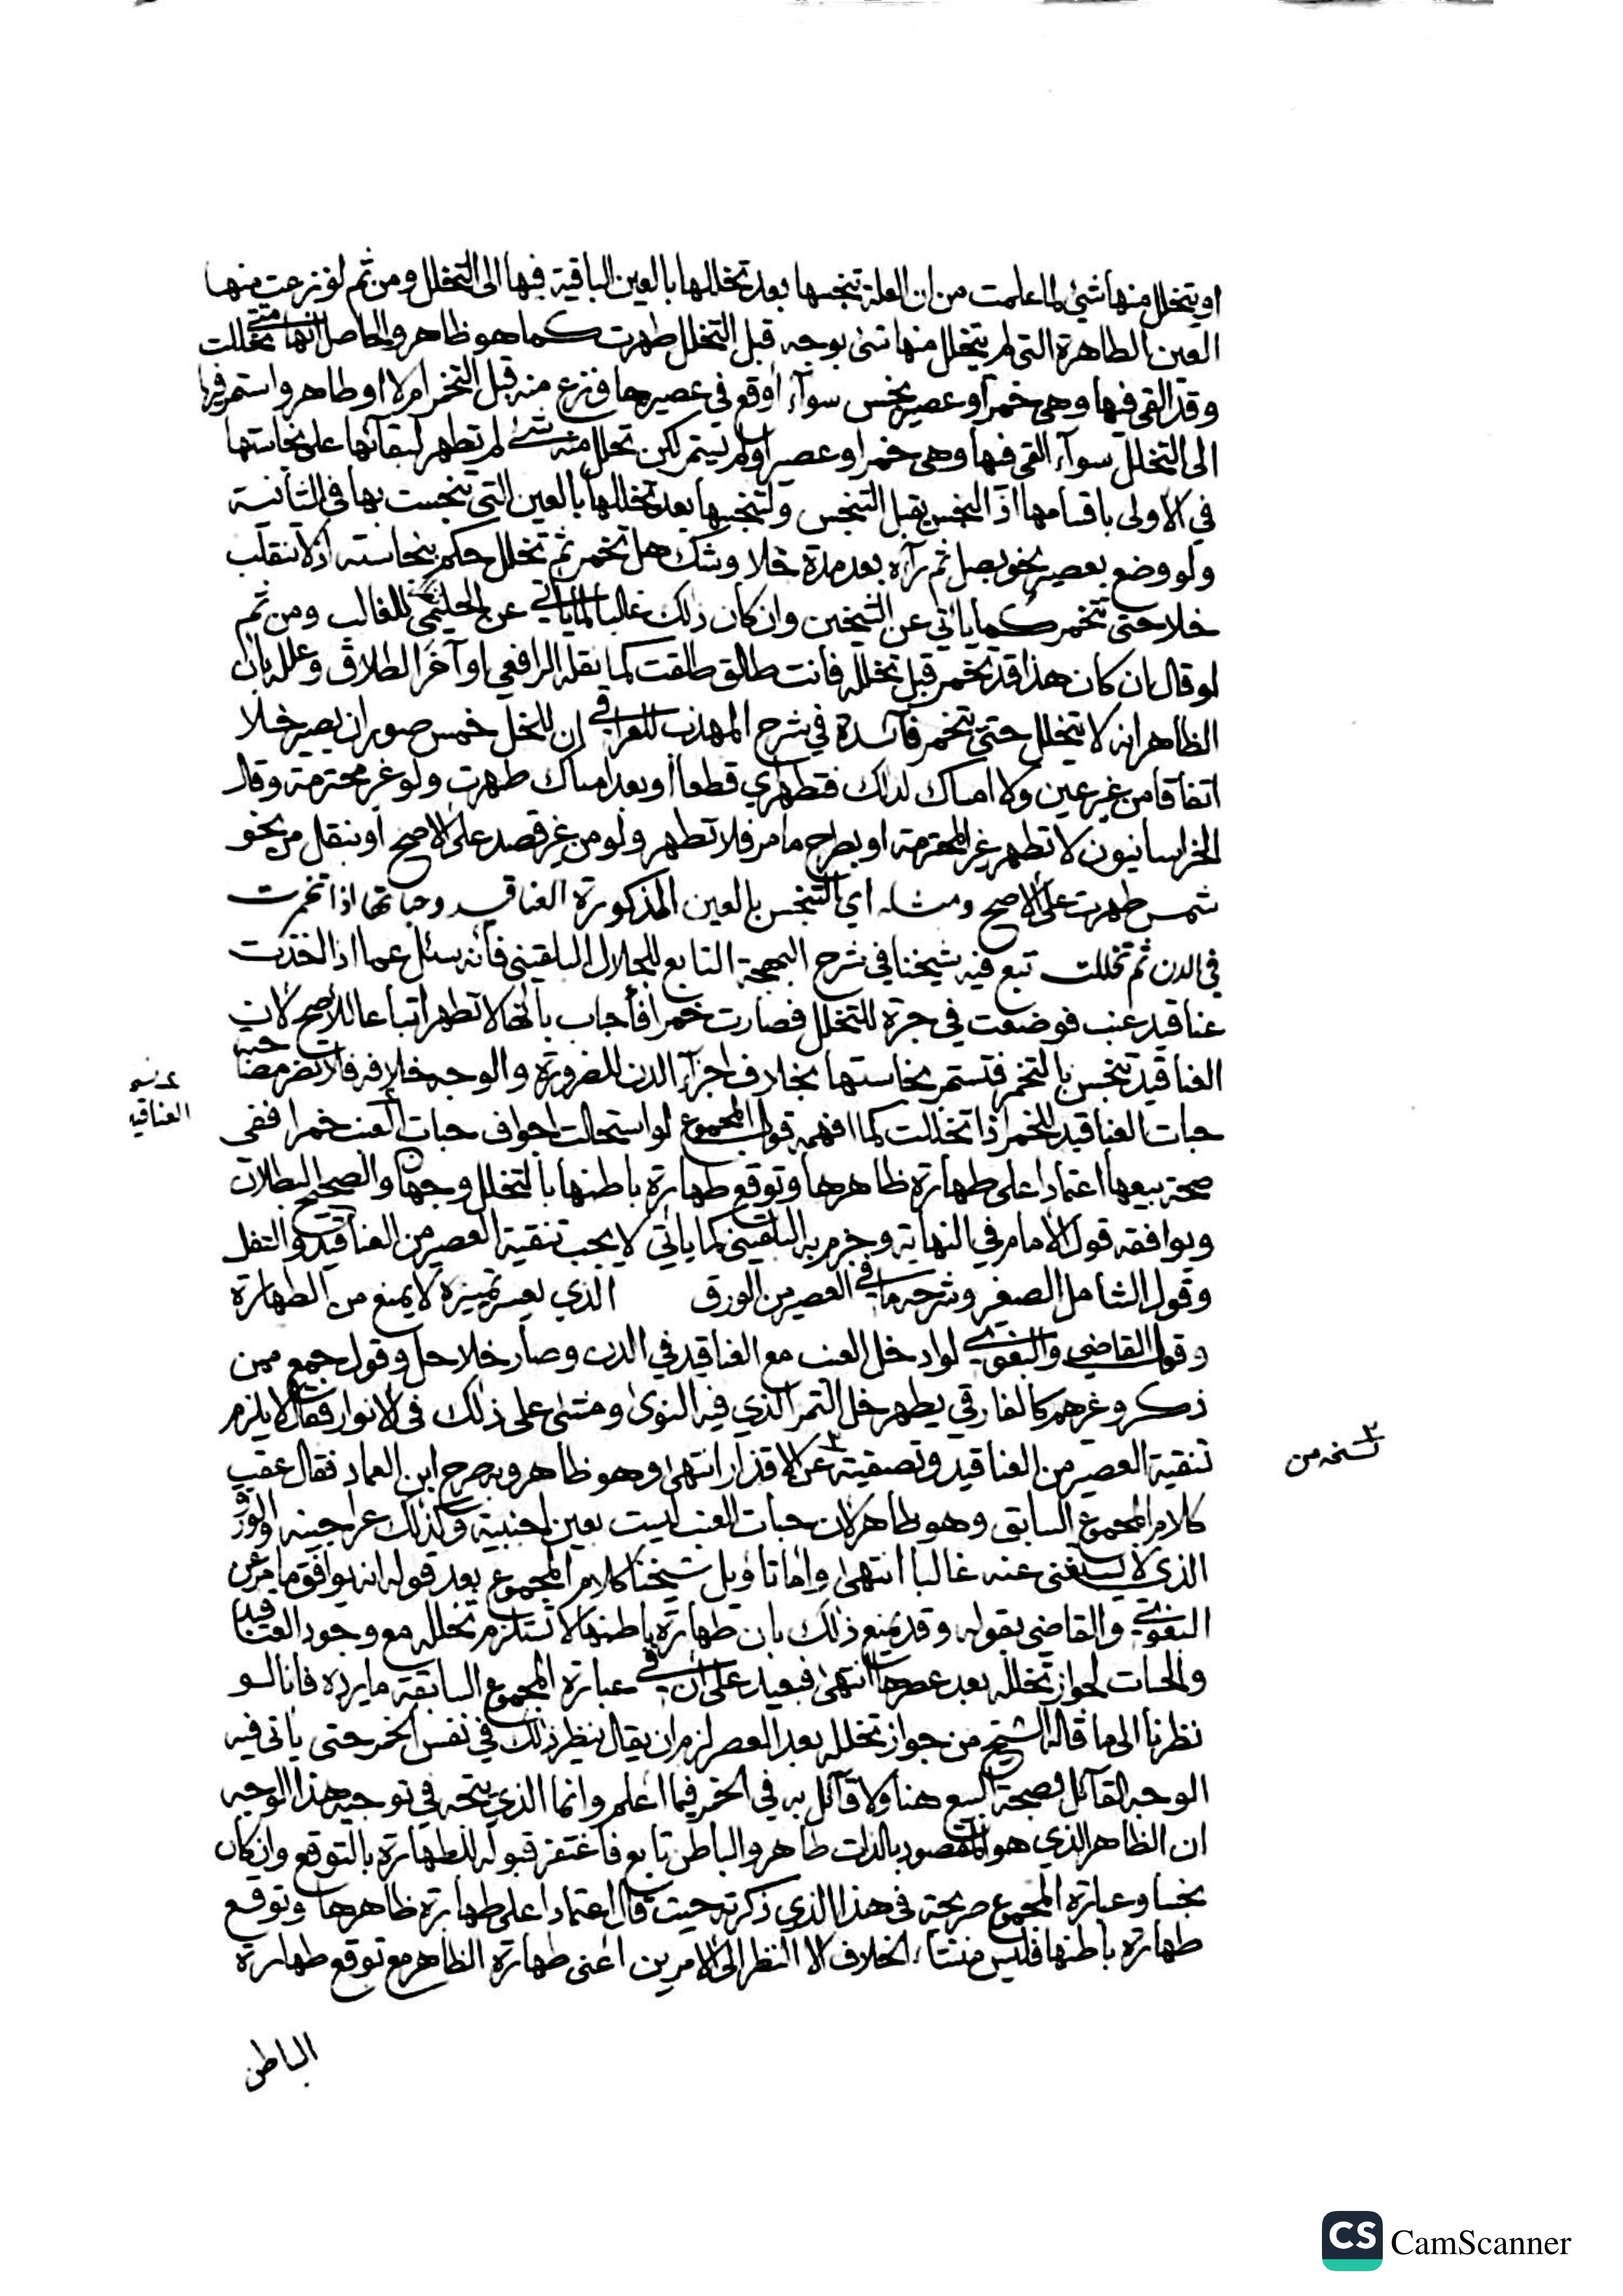 او يتخلل منها شئ لما علمت من ان العلة تنجسها بعد تخللها بالعين الباقية فيها الى التخلل ومن ثم لو نزعت منها
العين الطاهرة التى لم يتخلل منها شئ بوجه قبل التخلل طهرت كما هو ظاهر والحاصل انها متى تخللت
وقد القى فيها وهى خمر او عصير نجس سوآء أوقع فى عصيرها فنزع منه قبل التخمر ام لا او طاهر واستمر فيها
الى التخلل سوآء القى فيها وهى خمر او عصير او لم يستمر لكن تحلل منه شئ لم تطهر لبقائها على نجاستها
في الأولى باقسامها اذ النجس يقبل التنجس ولتنجسها بعد تخللها بالعين التى تنجست بها في الثانية
ولو وضع بعصير نحو بصل ثم رآه بعد مدة خلا وشك هل تخمر ثم تخلل حكم بنجاسته اذ لا ينقلب
خلا حتى تتخمر كما ياتي عن الشيخين وان كان ذلك غالبا لما ياتي عن الحليمي للغالب ومن ثم
لو قال ان كان هذا قد تخمر قبل تخلله فانت طالق طلقت كما نقله الرافعي اوآخر الطلاق وعلله بان
الظاهر انه لا يتخلل حتى يتخمر فآئدة في شرح المهذب للعراقي ان للخل خمس صور ان يصير خلا
اتفاقا من غير عين ولا امساك لذلك فتطهر اي قطعا او بعد امساك طهرت ولو غير محترمة وقال
الخراسانيون لا تطهر غير المحترمة او بطرح ما مر فلا تطهر ولو من غير قصد على الاصح او بنقل من نحو
شمس طهرت على الاصح ومثله اي التنجس بالعين المذكورة العناقيد وحباتها اذا تخمرت
في الدن ثم تخللت تبع فيه شيخنا في شرح البهجة التابع للجلال البلقيني فأنه سئل عما اذا اخذت
عناقيد عنب فوضعت في جرة للتخلل فصارت خمرا فأجاب بأنها لا تطهر اتباعا للاصح لان
العناقيد تنجس بالتخمر فتستمر نجاستها بخلاف اجزآء الدن للضرورة والوجه خلافه فلا تضر مصاحبة
عـ نسـ
العناقيد
حبات العناقيد للخمر اذا تخللت كما افهمه قول المجموع لو استحالت اجواف حبات العنب خمرا ففى
صحة بيعها اعتمادا على طهارة ظاهرها وتوقع طهارة باطنها بالتخلل وجهان والصحيح البطلان
ويوافقه قول الامام في النهاية وجزم به البلقينى كما ياتي لا يجب تنقية العصير من العناقيد والثفل
وقول الشامل الصغير وشرحه ما في العصير من الورق الذي يعسر تمييزه لا يمنع من الطهارة
وقول القاضي والبغوي لو ادخل العنب مع العناقيد في الدن وصار خلا حل وقول جمع ممن
ذكر وغيرهم كالفارقي يطهر خل التمر الذي فيه النوى ومشى على ذلك فى الانوار فقال لا يلزم
تنقية العصير من العناقيد وتصفيته ٣ عن الاقذار انتهى وهو ظاهر وبه صرح ابن العماد فقال عقب
٣ نسخه من
كلام المجموع السابق وهو ظاهر لان حبات العنب ليست بعين اجنبية وكذلك عراجينه او الورق
الذي لا يستغنى عنه غالبا انتهى واما تاويل شيخنا كلام المجموع بعد قوله انه يوافق ما مر عن
البغوي والقاضي بقوله وقد يمنع ذلك بان طهارة باطنها لا تستلزم تخلله مع وجود العناقيد
والحبات لجواز تخلله بعد عصرها انتهى فبعيد على ان في عبارة المجموع السابقة ما يرده فانا لو
نظرنا الى ما قاله الشيخ من جواز تخلله بعد العصر لزم ان يقال بنظير ذلك في نفس الخمر حتى ياتى فيه
الوجه القآئل بصحة البيع هنا ولا قآئل به فى الخمر فيما اعلم وانما الذي يتجه في توجيه هذا الوجه
ان الظاهر الذي هو المقصود بالذات طاهر والباطن تابع فاغتفر قبوله للطهارة بالتوقع وان كان
نجسا وعبارة المجموع صريحة فى هذا الذي ذكرته حيث قال اعتمادا على طهارة ظاهرها وتوقع
طهارة باطنها فليس منشأ الخلاف الا النظر الى الامرين اعنى طهارة الظاهر مع توقع طهارة
الباطن
CS CamScanner